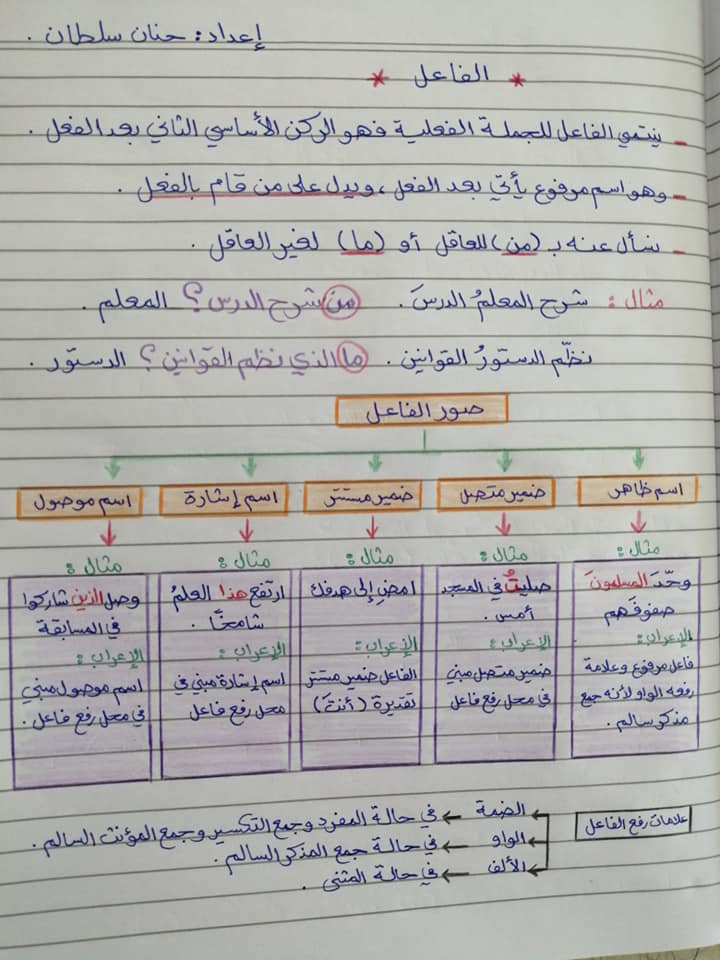 إعداد: حنان سلطان .
* الفاعل *
- ينتمي الفاعل للجملة الفعلية فهو الركن الأساسي الثاني بعد الفعل .
- وهو اسم مرفوع يأتي بعد الفعل ، ويدل على من قام بالفعل .
- نسأل عنه بـ (من) للعاقل أو (ما) لغير العاقل .
مثال : شرح المعلمُ الدرسَ . من شرح الدرس ؟ المعلم .
نظّم الدستورُ القوانين . ما الذي نظم القوانين ؟ الدستور .
صور الفاعل
اسم ظاهر
مثال :
وحّدَ المسلمونَ
صفوفَهم
الإعراب :
فاعل مرفوع وعلامة
رفعه الواو لأنه جمع
مذكر سالم .
ضمير متصل
مثال :
صليتُ في المسجد
أمس .
الإعراب :
ضمير متصل مبني
في محل رفع فاعل
ضمير مستتر
مثال :
امضِ إلى هدفك
الإعراب :
الفاعل ضمير مستتر
تقديرة (أنتَ)
اسم إشارة
مثال :
ارتفع هذا العلمُ
شامخًا .
الإعراب :
اسم إشارة مبني في
محل رفع فاعل
اسم موصول
مثال :
وصل الذين شاركوا
في المسابقة
الإعراب :
اسم موصول مبني
في محل رفع فاعل .
علامات رفع الفاعل
الضمة ← في حالة المفرد وجمع التكسير وجمع المؤنث السالم .
الواو ← في حالة جمع المذكر السالم .
الألف ← في حالة المثنى .